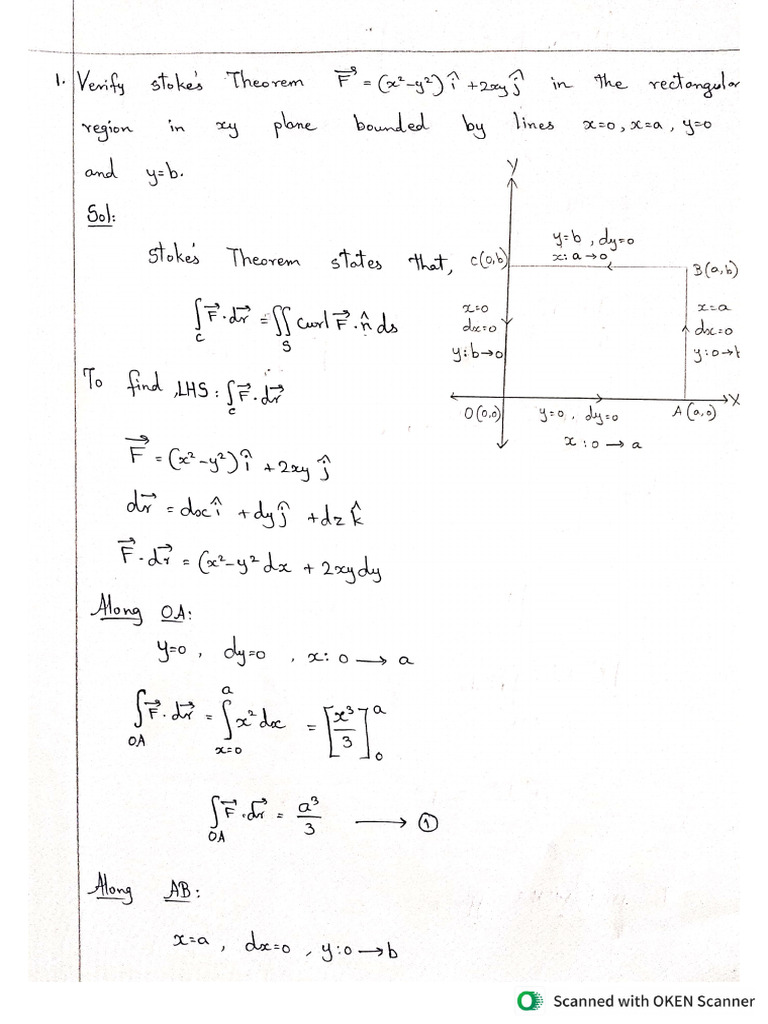 1. Verify stoke's Theorem F⃗ = (x²-y²) î + 2xy ĵ in the rectangular
region in xy plane bounded by lines x=0, x=a, y=0
and y=b.
Sol:
Stoke's Theorem states that,
∫_C F⃗ · dr⃗ = ∬_S curl F⃗ · n̂ ds
Y
C(0,b)
y=b, dy=0
x: a → 0
B(a,b)
x=0
dx=0
y: b → 0
x=a
dx=0
y: 0 → b
O(0,0)
y=0, dy=0
A(a,0)
X
x: 0 → a
To find, LHS: ∫_C F⃗ · dr⃗
F⃗ = (x²-y²) î + 2xy ĵ
dr⃗ = dx î + dy ĵ + dz k̂
F⃗ · dr⃗ = (x²-y² dx + 2xy dy
Along OA:
y=0, dy=0, x: 0 → a
∫_OA F⃗ · dr⃗ = ∫_{x=0}^{a} x² dx = [x³/3]_0^a
∫_OA F⃗ · dr⃗ = a³/3 → ①
Along AB:
x=a, dx=0, y: 0 → b
Scanned with OKEN Scanner